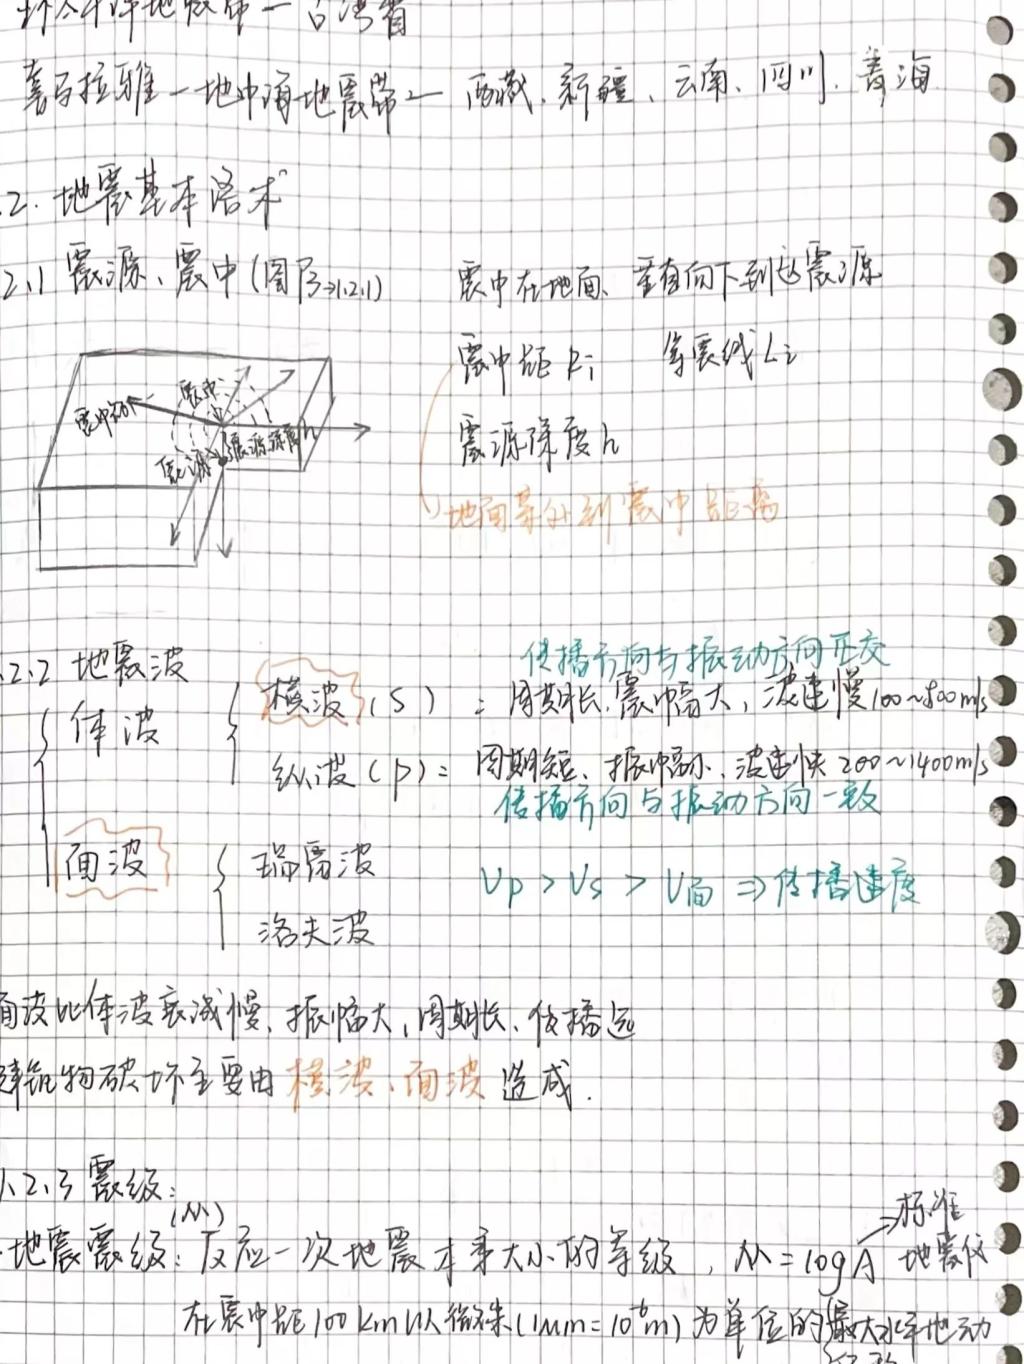 环太平洋地震带—台湾省
喜马拉雅—地中海地震带— 西藏、新疆、云南、四川、青海
.2. 地震基本术
2.1 震源、震中(图 →1.2.1) 震中在地面、垂直向下到达震源
震中距 等震线Li
震源深度h
地面某处到震中距离
震中
震中距
震源
震源深度h
2.2 地震波
传播方向与振动方向正交
体波
横波(S): 周期长、震幅大,波速慢100~800m/s
纵波(P): 周期短、振幅小、波速快200~1400m/s
传播方向与振动方向一致
面波
瑞雷波
洛夫波
Vp > Vs > V面 ⇒传播速度
面波比体波衰减慢、振幅大,周期长、传播远
建筑物破坏主要由横波、面波造成.
1.2.3 震级:
(M)
地震震级: 反应一次地震本身大小的等级, M=logA →标准地震仪
在震中距100km以微米(1μm=10⁻⁶m)为单位的最大水平地动